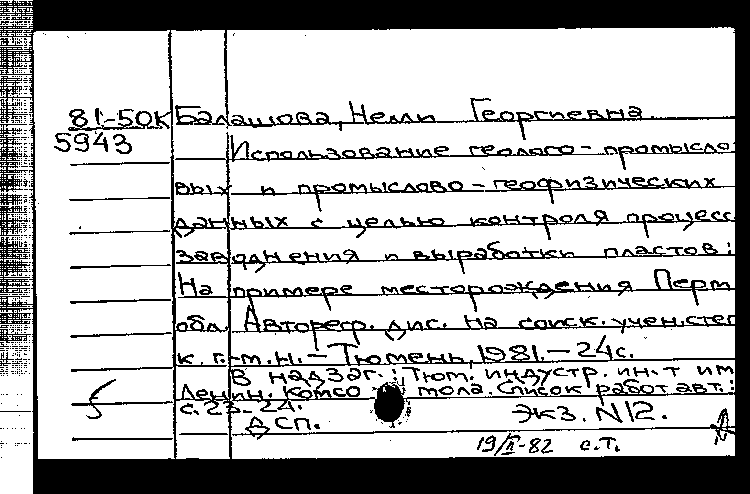 81-50К Балашова, Нелли Георгиевна.
5943 Использование геолого-промысло
вых и промыслово-геофизических
данных с целью контроля процесс
заводнения и выработки пластов:
На примере месторождения Перм
обл. Автореф. дис. на соиск. учен. степ
к. г.-м. н. - Тюмень, 1981. - 24с.
В надзаг.: Тюм. индустр. ин-т им
Ленин. комсомола. Список работ авт.:
с. 23-24.
ДСП. Экз. N12.
19/II-82 с.т.